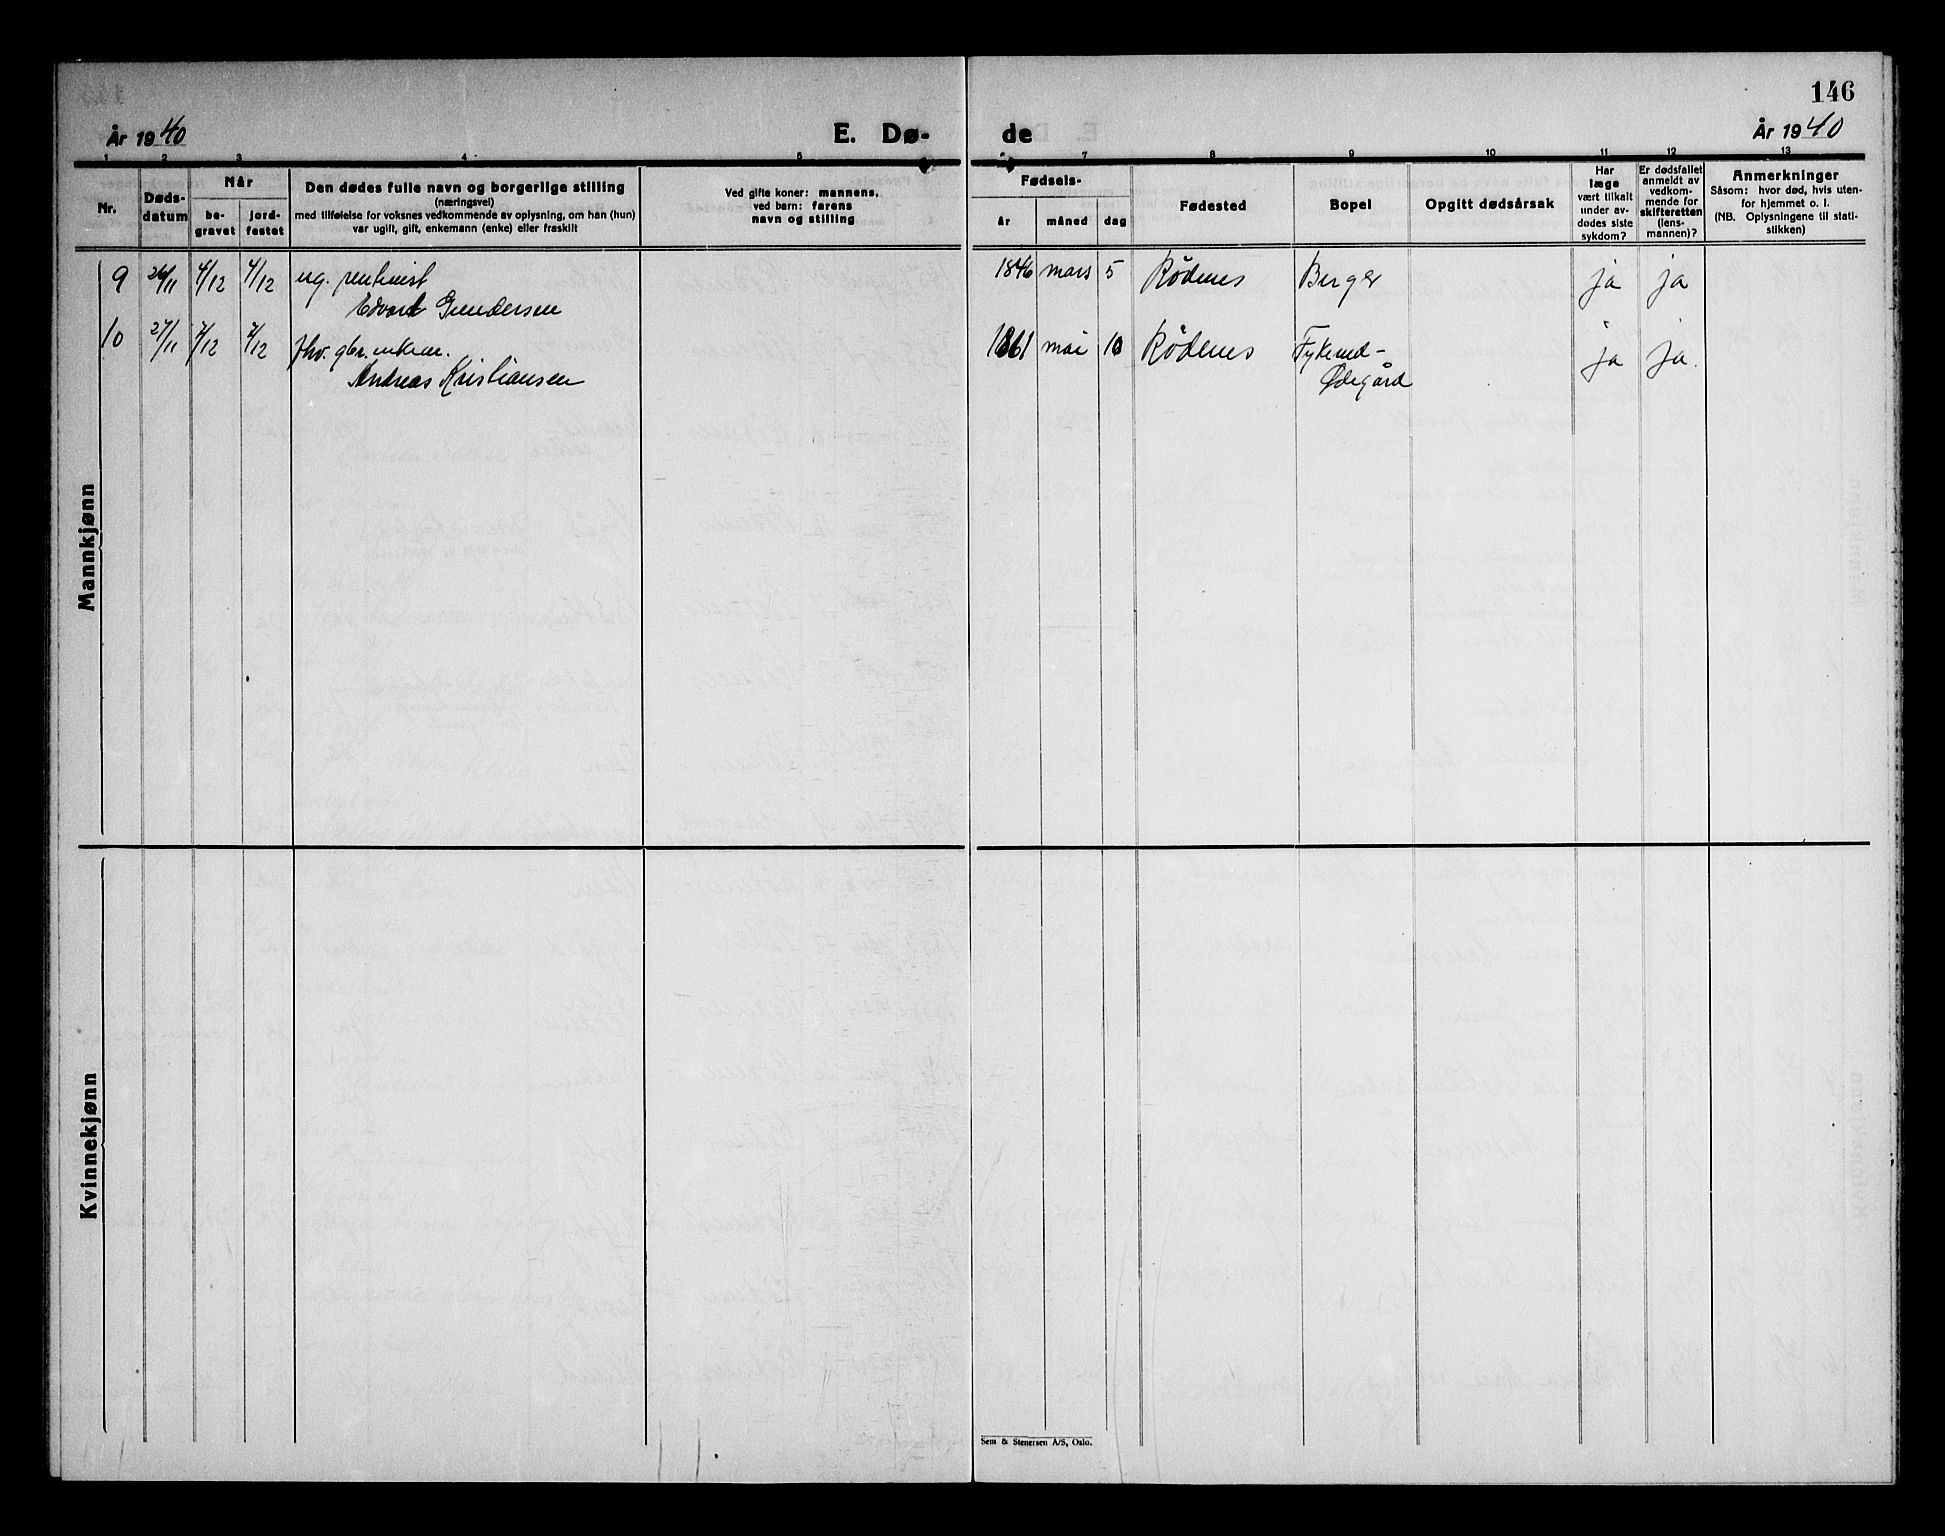 146
År 1940
E. Dø-
de
År 1940
1 2 3 4 5 7 8 9 10 11 12 13
Nr.
Døds-
datum
Når
be-
gravet
jord-
festet
Den dødes fulle navn og borgerlige stilling
(næringsvei)
med tilføielse for voksnes vedkommende av oplysning, om han (hun)
var ugift, gift, enkemann (enke) eller fraskilt
Ved gifte koner: mannens,
ved barn: farens
navn og stilling
Fødsels-
år
måned
dag
Fødested
Bopel
Opgitt dødsårsak
Har
læge
vært tilkalt
under av-
dødes siste
sykdom?
Er dødsfallet
anmeldt av
vedkom-
mende for
skifteretten
(lens-
mannen)?
Anmerkninger
Såsom: hvor død, hvis uten-
for hjemmet o. l.
(NB. Oplysningene til stati-
stikken)
Mannkjønn
9 26/11 4/12 4/12 ug. rentenist 1846 mars 5 Rödenes Berger ja ja
Edvard Gundersen
10 27/11 7/12 7/12 fhv. gbr. enkem. 1861 mai 10 Rödenes Fykerud- ja ja.
Andreas Kristiansen Ødegård
Kvinnekjønn
Sem & Stenersen A/S, Oslo.